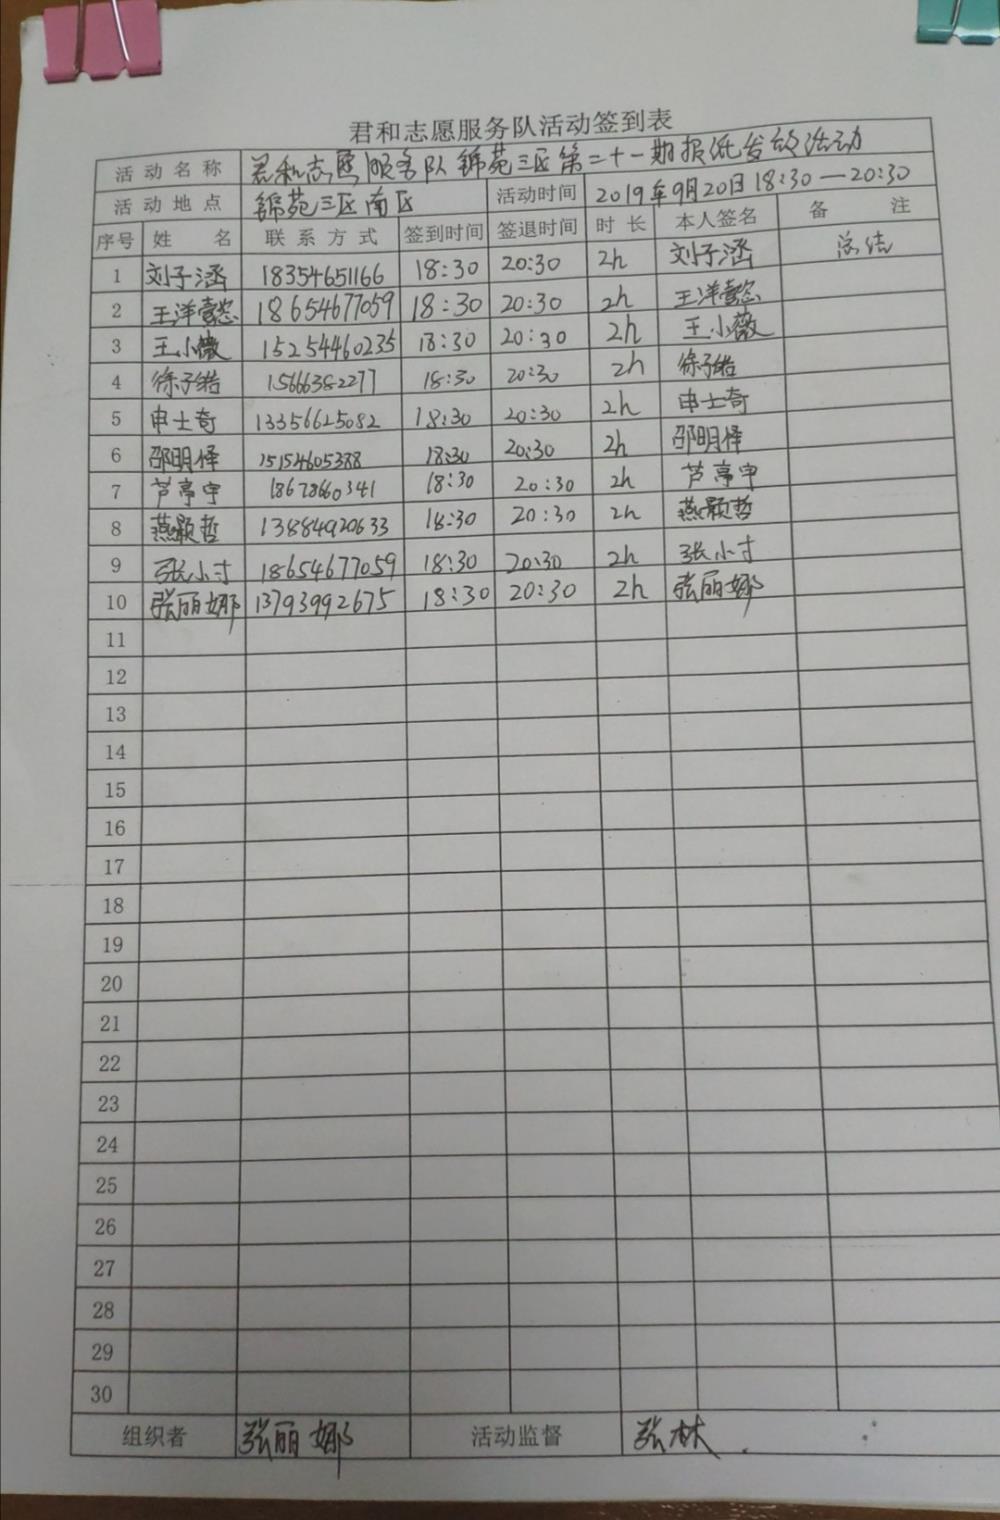 君和志愿服务队活动签到表
活动名称 君和志愿服务队锦苑三区第二十一期报纸发放活动
活动地点 锦苑三区南区 活动时间 2019年9月20日18:30—20:30
序号 姓名 联系方式 签到时间 签退时间 时长 本人签名 备注
1 刘子涵 18354651166 18:30 20:30 2h 刘子涵 总结
2 王洋懿 18654677059 18:30 20:30 2h 王洋懿
3 王小薇 15254460235 18:30 20:30 2h 王小薇
4 徐子皓 15666382277 18:30 20:30 2h 徐子皓
5 申士奇 13356625082 18:30 20:30 2h 申士奇
6 邵明怿 15154605388 18:30 20:30 2h 邵明怿
7 芦亭宇 18678660341 18:30 20:30 2h 芦亭宇
8 燕颢哲 13884920633 18:30 20:30 2h 燕颢哲
9 张小寸 18654677059 18:30 20:30 2h 张小寸
10 张丽娜 13793992675 18:30 20:30 2h 张丽娜
11
12
13
14
15
16
17
18
19
20
21
22
23
24
25
26
27
28
29
30
组织者 张丽娜 活动监督 张林